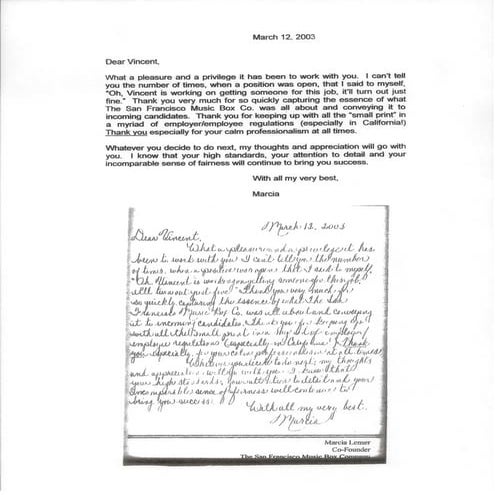 March 12, 2003
Dear Vincent,
What a pleasure and a privilege it has been to work with you. I can't tell
you the number of times, when a position was open, that I said to myself,
"Oh, Vincent is working on getting someone for this job, it'll turn out just
fine." Thank you very much for so quickly capturing the essence of what
The San Francisco Music Box Co. was all about and conveying it to
incoming candidates. Thank you for keeping up with all the "small print" in
a myriad of employer/employee regulations (especially in California!)
Thank you especially for your calm professionalism at all times.
Whatever you decide to do next, my thoughts and appreciation will go with
you. I know that your high standards, your attention to detail and your
incomparable sense of fairness will continue to bring you success.
With all my very best,
Marcia
March 13, 2003
Dear Vincent,
What a pleasure and a privilege it has
been to work with you. I can't tell you the number
of times, when a position was open, that I said to myself,
"Oh Vincent is working on getting someone for this job,
it'll turn out just fine." Thank you very much for
so quickly capturing the essence of what The San
Francisco Music Box Co. was all about and conveying
it to incoming candidates. Thank you for keeping up
with all the "small print" in a myriad of employer/
employee regulations (especially in California!) Thank
you especially for your calm professionalism at all times.
Whatever you decide to do next, my thoughts
and appreciation will go with you. I know that
your high standards, your attention to detail and your
incomparable sense of fairness will continue to
bring you success.
With all my very best,
Marcia
Marcia Lenser
Co-Founder
The San Francisco Music Box Company